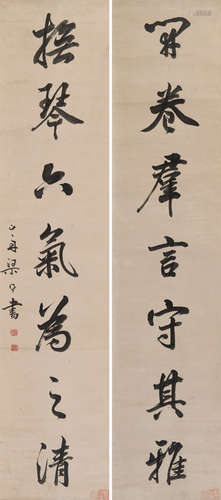 開卷羣言守其雅
撫琴六氣為之清
山舟梁同書